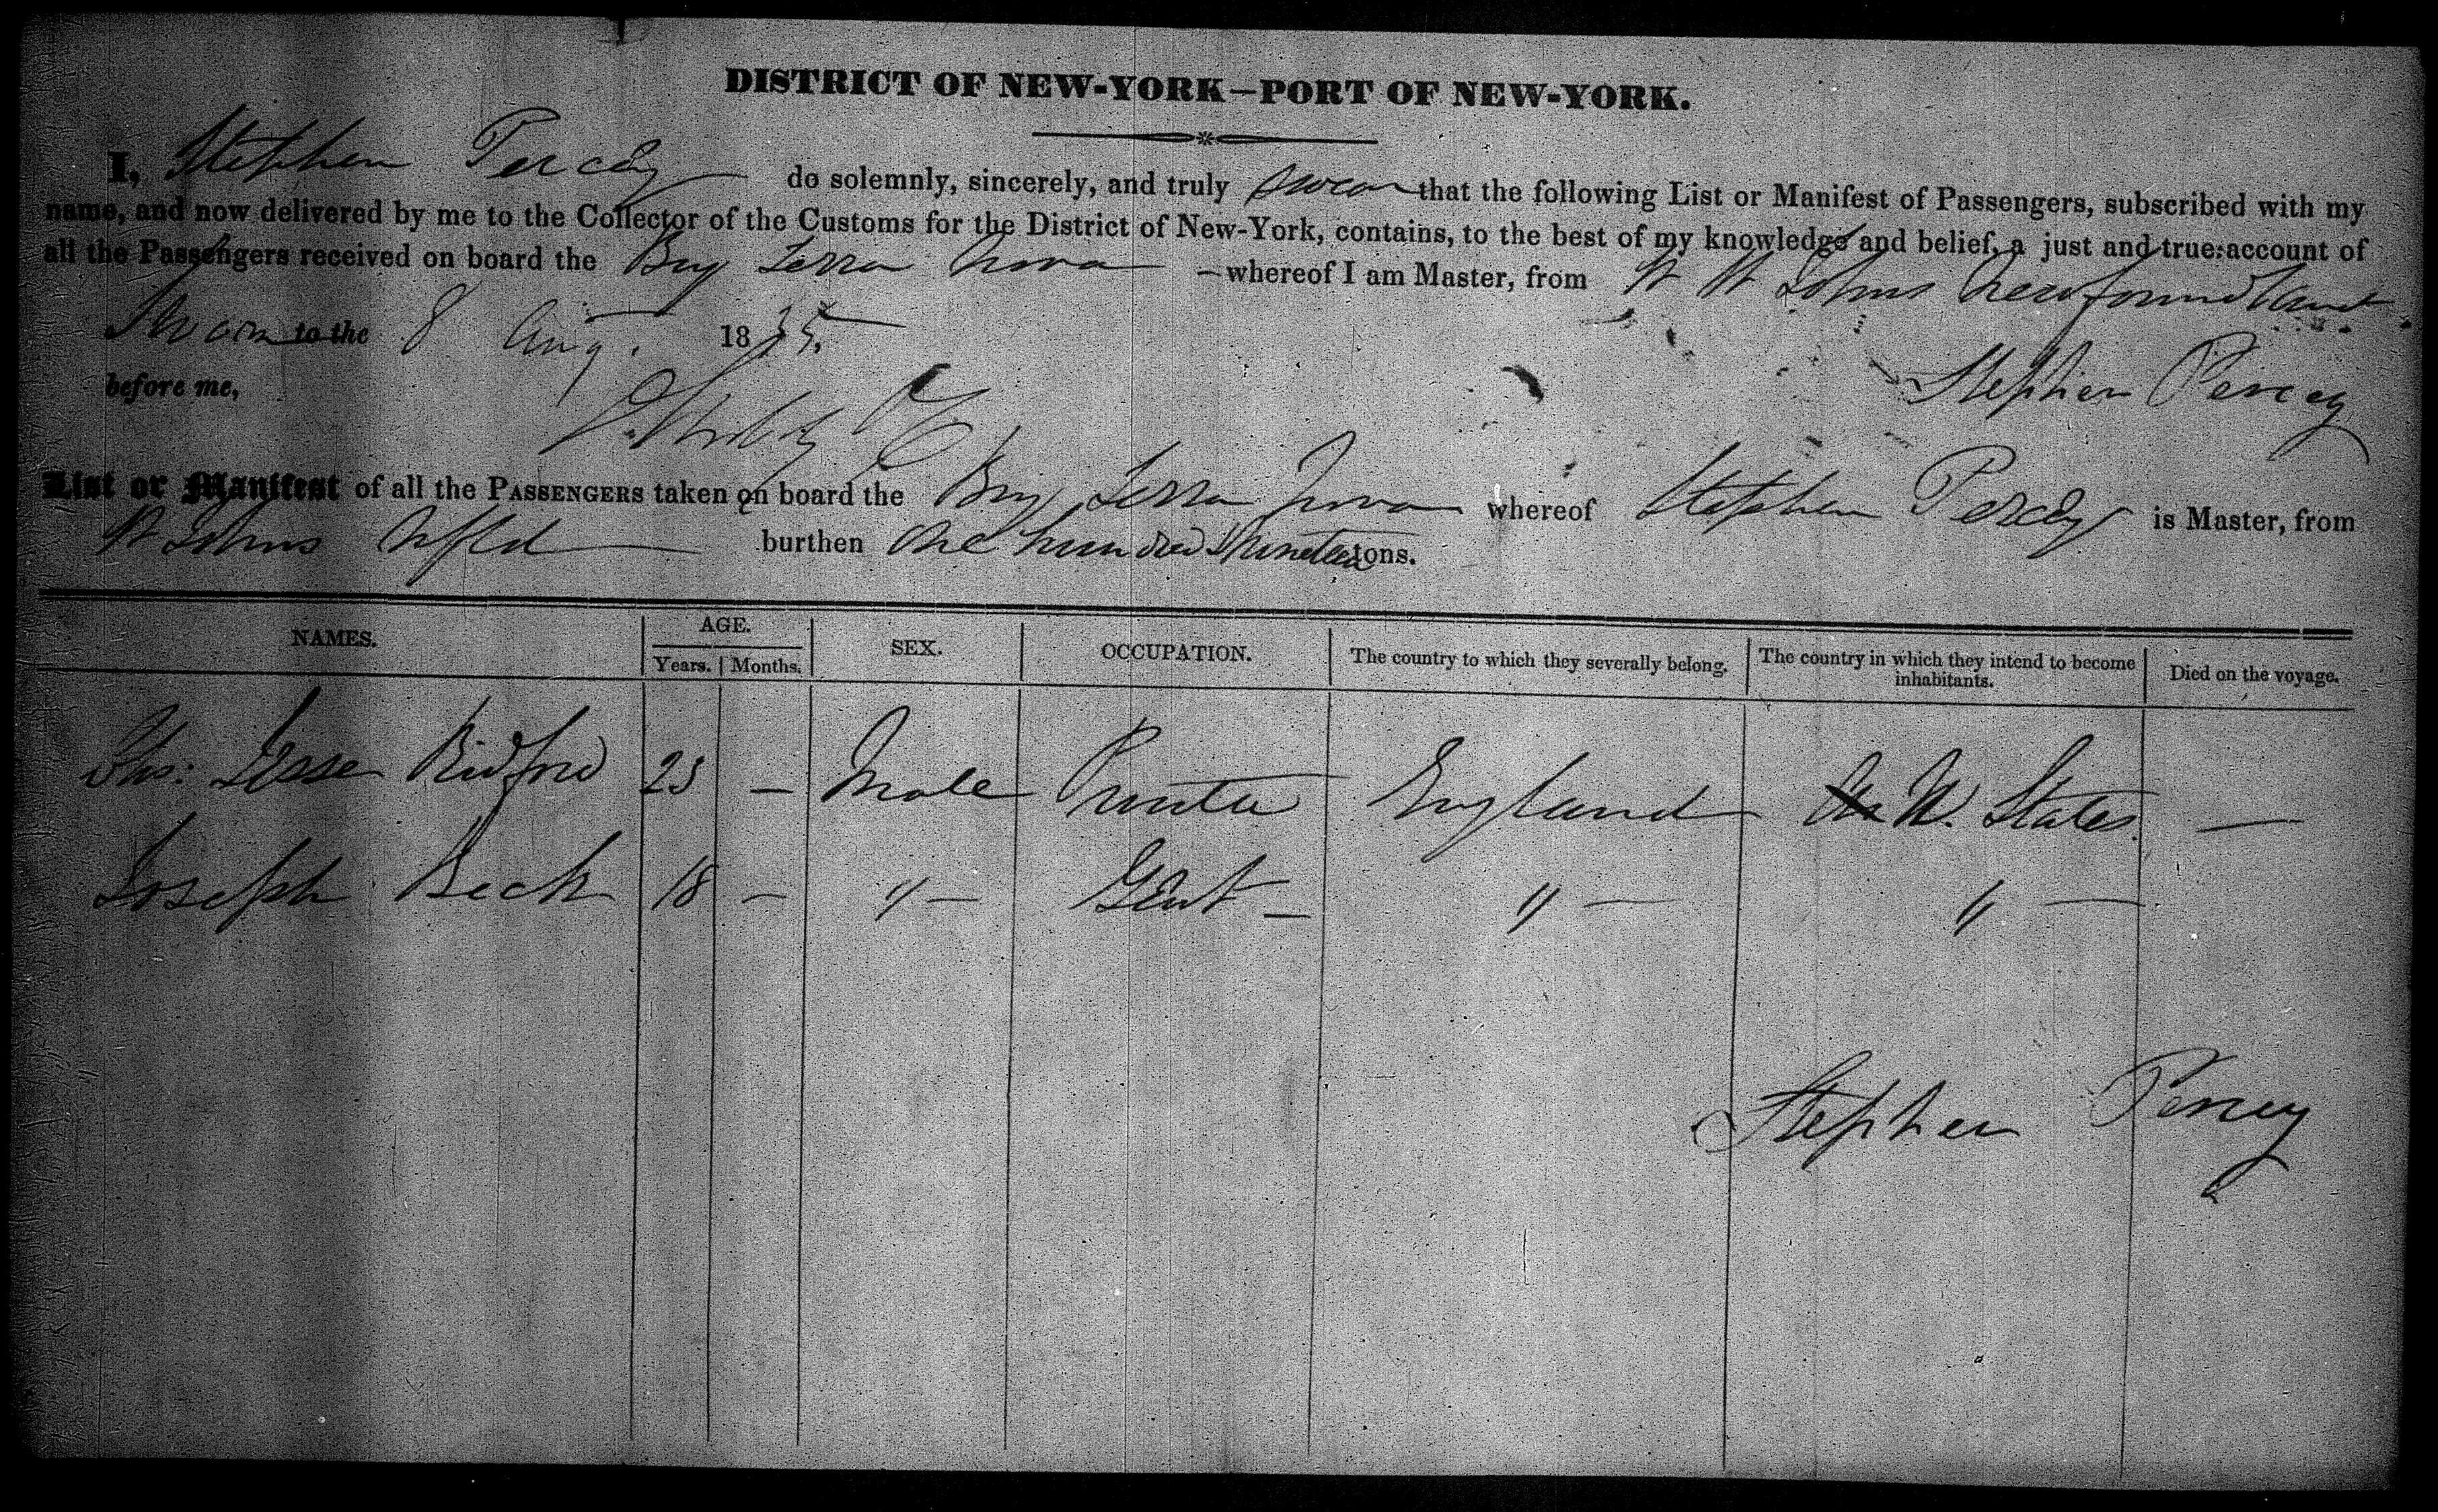 DISTRICT OF NEW-YORK—PORT OF NEW-YORK.
I, Stephen Percey do solemnly, sincerely, and truly swear that the following List or Manifest of Passengers, subscribed with my
name, and now delivered by me to the Collector of the Customs for the District of New-York, contains, to the best of my knowledge and belief, a just and true account of
all the Passengers received on board the Brig Terra Nova — whereof I am Master, from St Johns Newfoundland
Sworn to the 8 Aug. 1835.
before me, Stephen Percey
List or Manifest of all the PASSENGERS taken on board the Brig Terra Nova whereof Stephen Percey is Master, from
St Johns Nfld burthen One hundred & nineteen tons.
NAMES. AGE. Years. Months. SEX. OCCUPATION. The country to which they severally belong. The country in which they intend to become inhabitants. Died on the voyage.
Jesse 23 — Male Printer England U. States. —
Joseph Beck 18 — " — Gent — " — " —
Stephen Percey